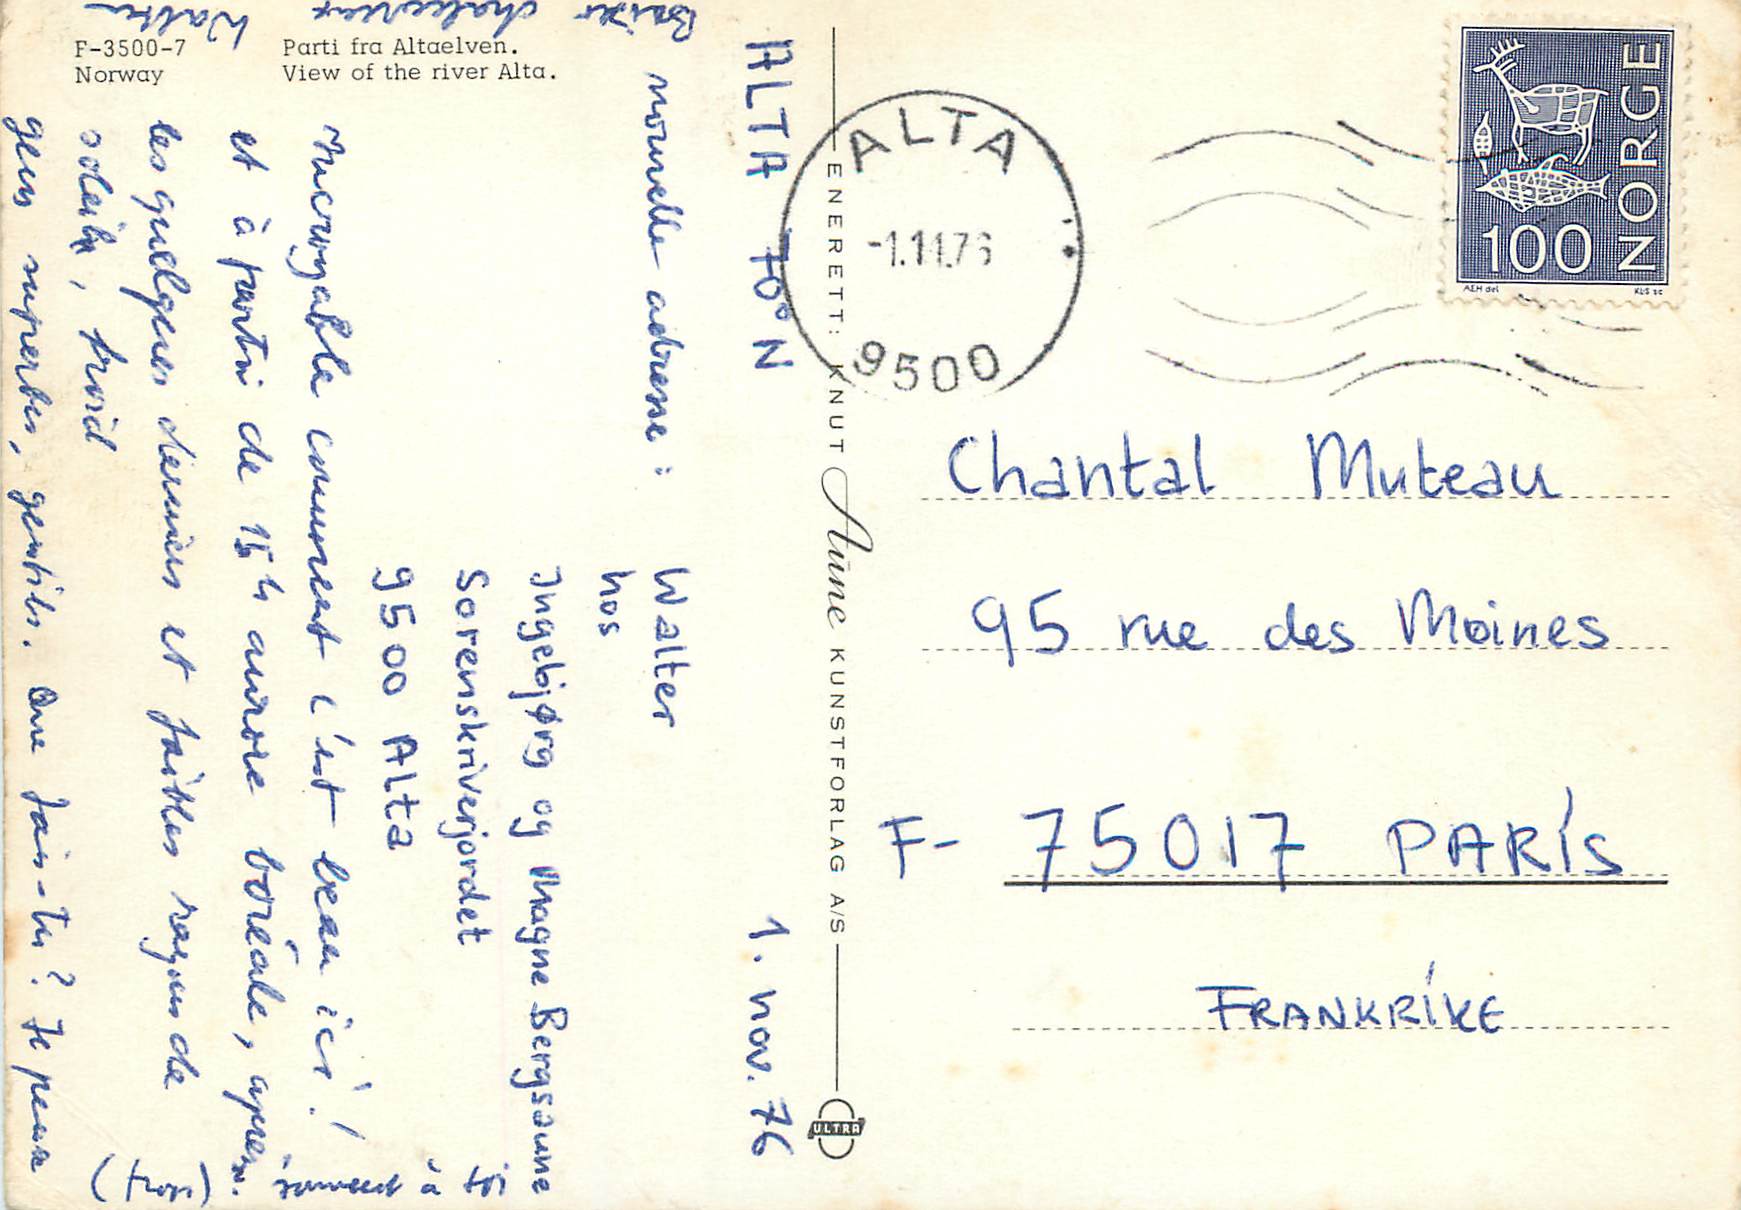 F-3500-7
Norway
Parti fra Altaelven.
View of the river Alta.
ALTA 70° N
1. nov. 76
nouvelle adresse :
Walter
hos
Ingebjørg og Magne Bergsaune
Sorenskriverjordet
9500 Alta
Incroyable comment c'est beau ici !
et à partir de 15h aurore boréale, après
les quelques derniers et faibles rayons de
soleils, froid
gens superbes, gentils. Que fais-tu? Je pense
(trop) souvent à toi
Baiser chaleureux Walter
ENERETT: KNUT Aune KUNSTFORLAG A/S
ULTRA
ALTA
-1.11.76
9500
NORGE
100
AEH del
KLS sc
Chantal Muteau
95 rue des Moines
F- 75017 PARIS
FRANKRIKE